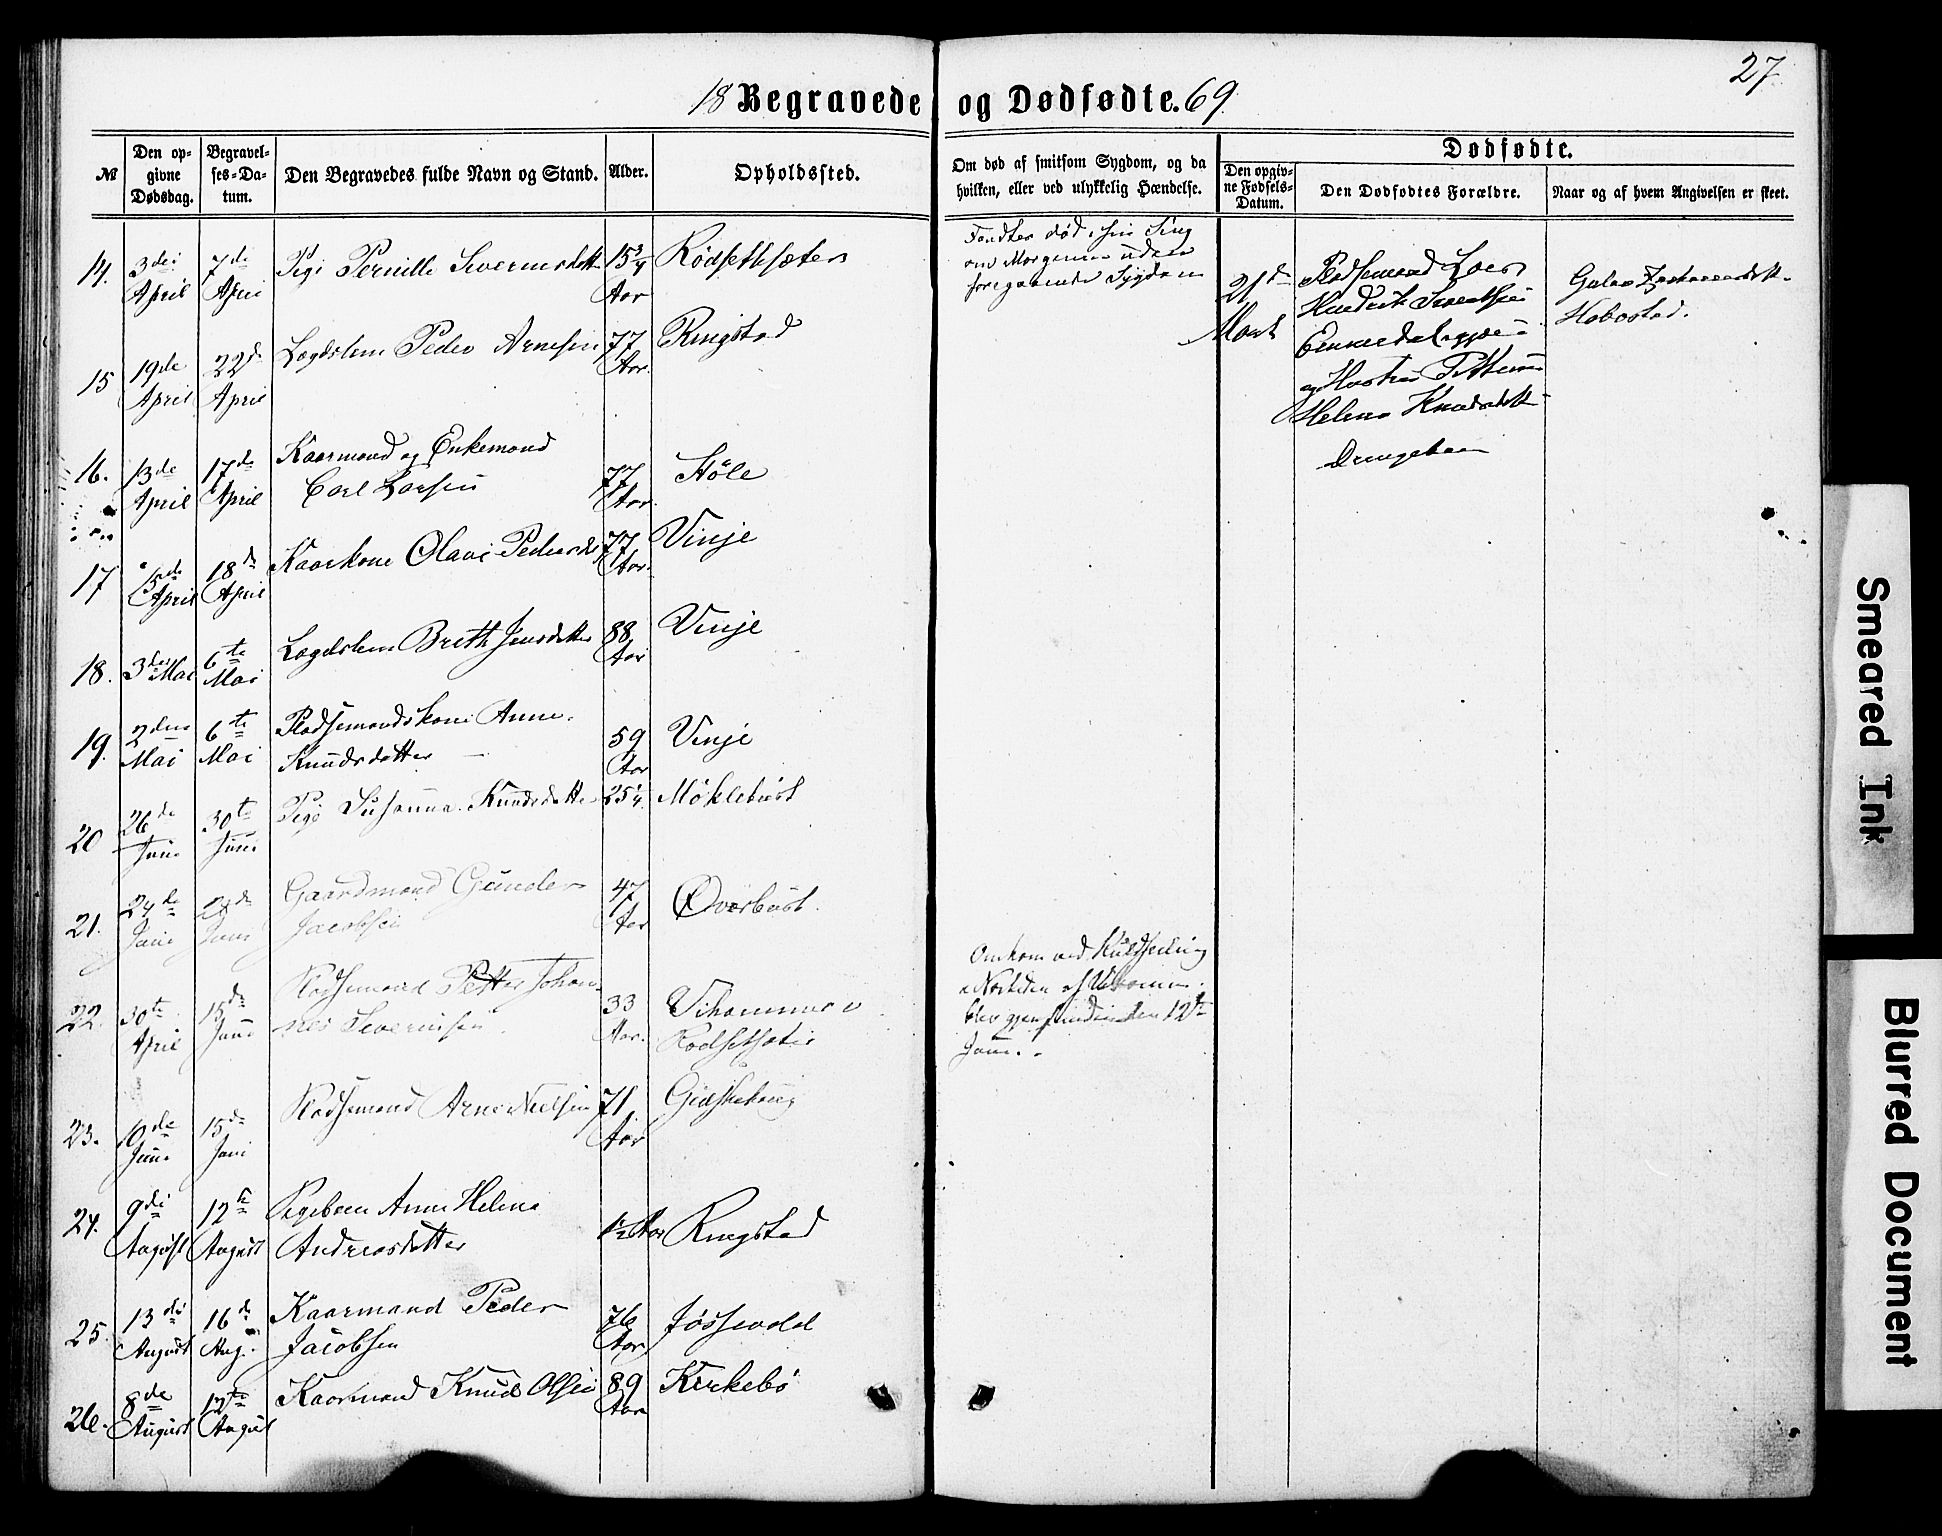 27.
18 Begravede og Dødfødte. 69
№
Den op-
givne
Dødsdag.
Begravel-
ses-Da-
tum.
Den Begravedes fulde Navn og Stand.
Alder.
Opholdssted.
Om død af smitsom Sygdom, og da
hvilken, eller ved ulykkelig Hændelse.
Dødfødte.
Den opgiv-
ne Fødsels-
Datum.
Den Dødfødtes Forældre.
Naar og af hvem Angivelsen er skeet.
14. 3die April 7de April Pige Pernille Severinsdatter 15 3/4 Aar Rødsethsæter
Fandtes død i sin Seng
om Morgenen uden
foregaaende Sygdom
21de Marts
Pladsemand
og Hustru
Helena Knudsdatter
15 19de April 22de April Lægdslem Peder Arnesen 77 Aar. Ringstad
16. 13de April 17de April Kaarmand og Enkemand
Carl Larsen 77 Aar. Høle
17 15de April 18de April Kaarkone Olave Pedersd 77 Aar. Vinje
18. 3die Mai 6te Mai Lægdslem Brith Jensdatter 88 Aar Vinje
19. 2den Mai 6te Mai Pladsemandskone Anne
Knudsdatter 59 Aar Vinje
20 26de Juni 30te Juni Pige Susanna Knudsdatter 25 1/4 Møklebust
21. 24de Juni 28de Juni Gaardmand Gunder
Jacobsen 47 Aar Øverbust.
22. 30te April 15de Juni Pladsemand Petter Johan-
nes Severinsen 33 Aar.
Rødsetsæter
Omkom ved Kuldseiling
blev gjenfunden den 12te
Juni.
23. 10de Juni 15de Juni Pladsemand Arne Nielsen 71 Aar Gidskehaug
24. 9de August 12te August Pigebarn Anne Helena
Andreasdatter 1 1/2 Aar Ringstad
25. 13de August 16de Aug. Kaarmand Peder
Jacobsen 76 Aar Jøssevold
26. 8de August 12te August Kaarmand Knud Olsen 89 Aar Kirkebø
Smeared Ink
Blurred Document